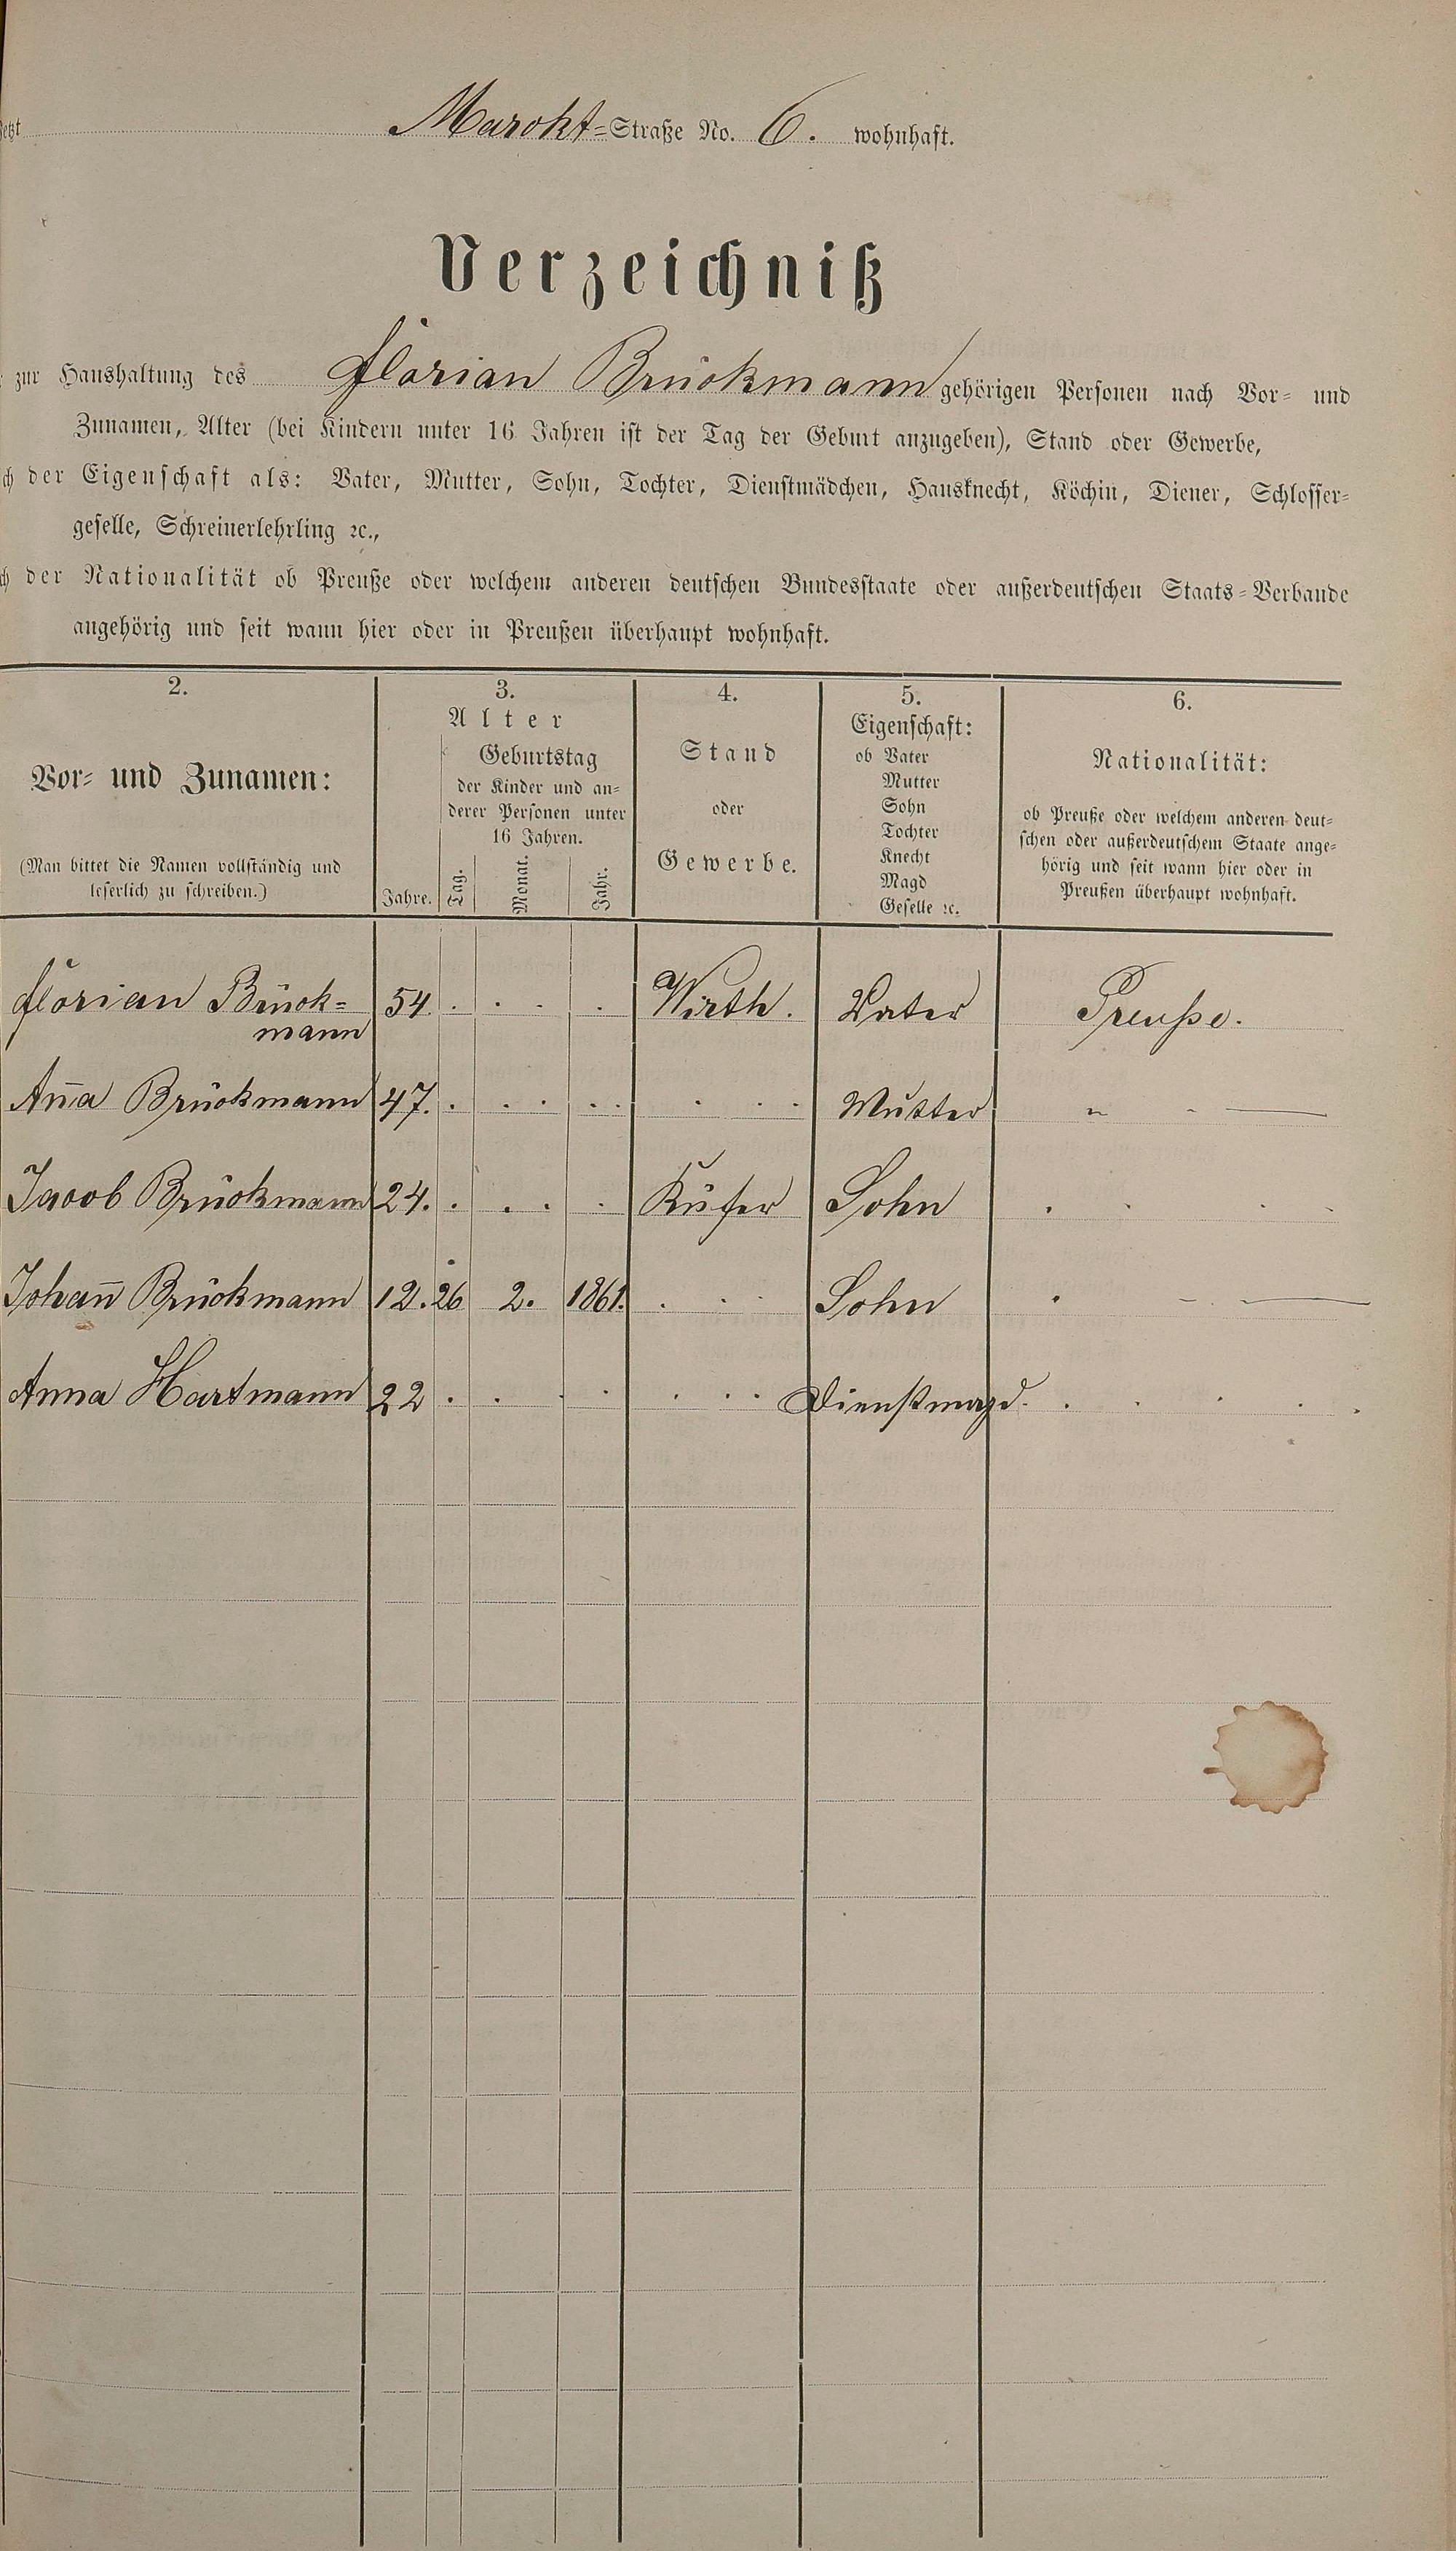 jetzt Marckt-Straße No. 6. wohnhaft.
Verzeichniß
zur Haushaltung des Florian Brückmann gehörigen Personen nach Vor- und
Zunamen, Alter (bei Kindern unter 16 Jahren ist der Tag der Geburt anzugeben), Stand oder Gewerbe,
ch der Eigenschaft als: Vater, Mutter, Sohn, Tochter, Dienstmädchen, Hausknecht, Köchin, Diener, Schlosser-
geselle, Schreinerlehrling ꝛc.,
ch der Nationalität ob Preuße oder welchem anderen deutschen Bundesstaate oder außerdeutschen Staats-Verbande
angehörig und seit wann hier oder in Preußen überhaupt wohnhaft.
2.
Vor- und Zunamen:
(Man bittet die Namen vollständig und
leserlich zu schreiben.)
3.
Alter
Geburtstag
der Kinder und an-
derer Personen unter
16 Jahren.
Jahre. Tag. Monat. Jahr.
4.
Stand
oder
Gewerbe.
5.
Eigenschaft:
ob Vater
Mutter
Sohn
Tochter
Knecht
Magd
Geselle ꝛc.
6.
Nationalität:
ob Preuße oder welchem anderen deut-
schen oder außerdeutschem Staate ange-
hörig und seit wann hier oder in
Preußen überhaupt wohnhaft.
Florian Brück- 54. Wirth. Vater Preuße.
mann
An̄a Brückmann 47. Mutter " -
Jacob Brückmann 24. Küfer Sohn
Johan̄ Brückmann 12. 26 2. 1861. Sohn
Anna Hartmann 22 Dienstmagd.